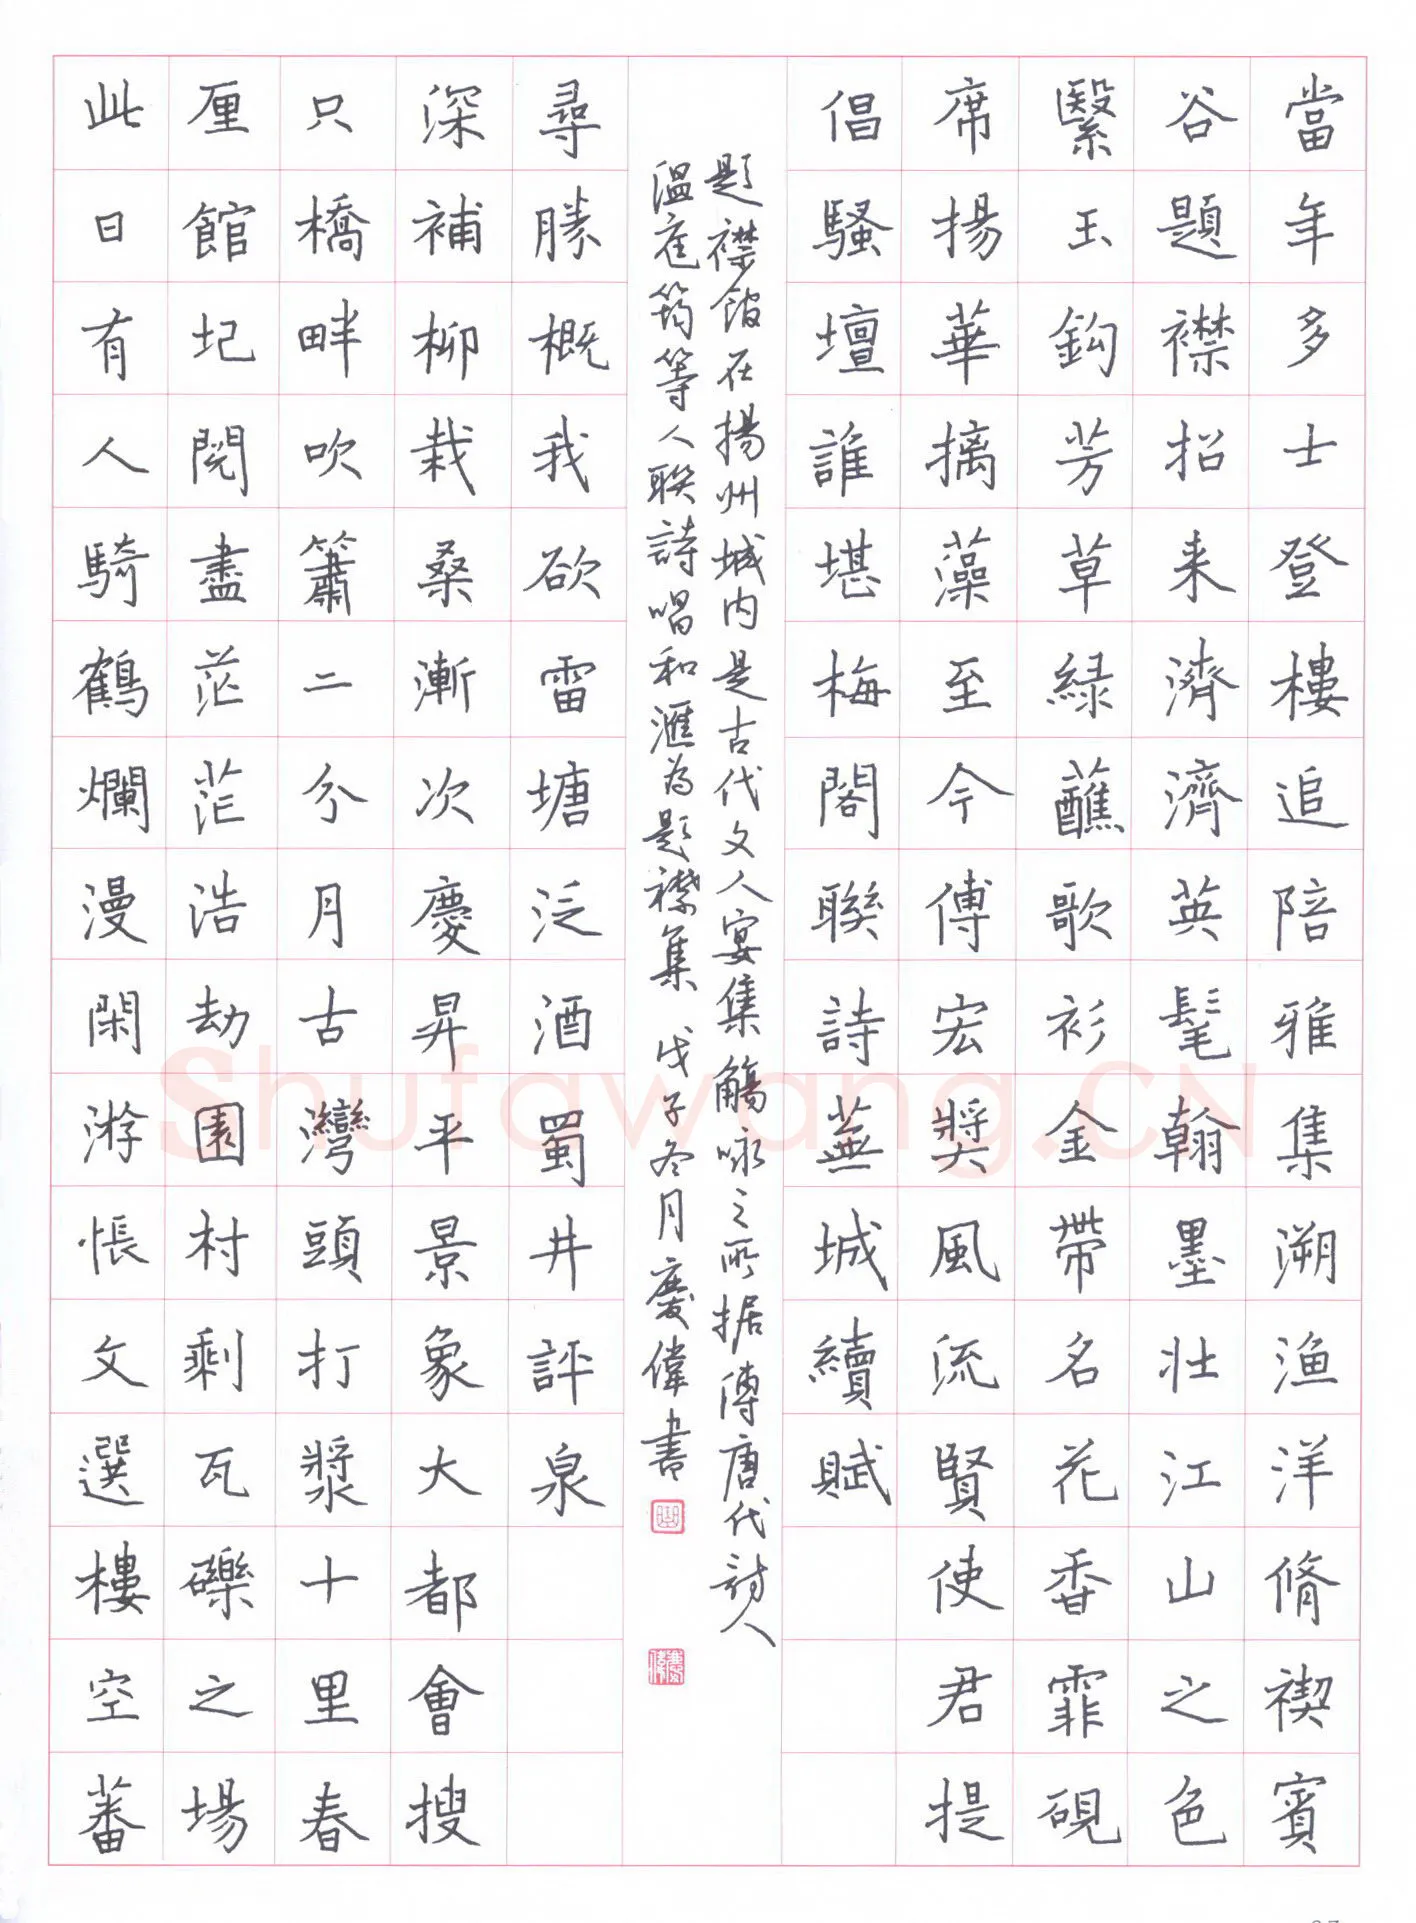 當年多士登樓追陪雅集溯漁洋脩禊賓
谷題襟招来濟濟英髦翰墨壯江山之色
繄玉鈎芳草緑蘸歌衫金帶名花香霏硯
席揚華摛藻至今傳宏獎風流賢使君提
倡騷壇誰堪梅閣聯詩蕪城續賦
此日有人騎鶴爛漫閑游悵文選樓空蕃
厘館圮閱盡茫茫浩劫園村剩瓦礫之場
只橋畔吹簫二分月古灣頭打漿十里春
深補柳栽桑漸次慶昇平景象大都會搜
尋勝概我欲雷塘泛酒蜀井評泉
題襟館在揚州城内是古代文人宴集觴咏之所据傳唐代詩人
温庭筠等人聯詩唱和滙為題襟集 戊子冬月慶偉書
慶偉
Shufawang.CN